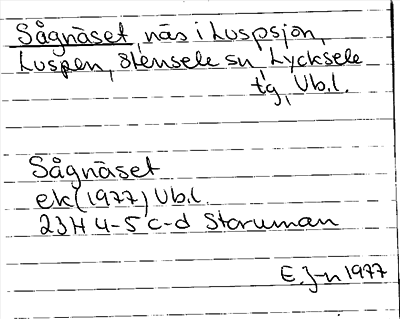 Sågnäset, näs i Luspsjön,
Luspen, Stensele sn Lycksele
tg, Vb.l.
Sågnäset
ek (1977) Vb.l.
23H 4-5 c-d Storuman
E.J-n 1977